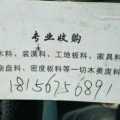 专业收购
木料、装潢料、工地板料、家具料
盘料、密度板料等一切木黄皮料
18156756891